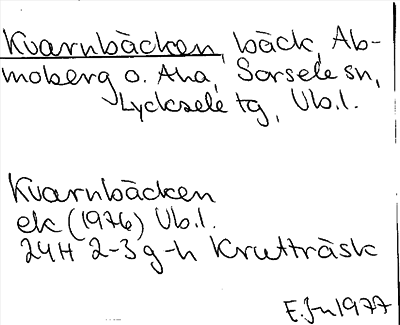 Kvarnbäcken, bäck, Ab-
moberg o. Aha, Sorsele sn,
Lycksele tg, Vb.l.
Kvarnbäcken
ek (1976) Vb.l.
24H 2-3 g-h Krutträsk
1977